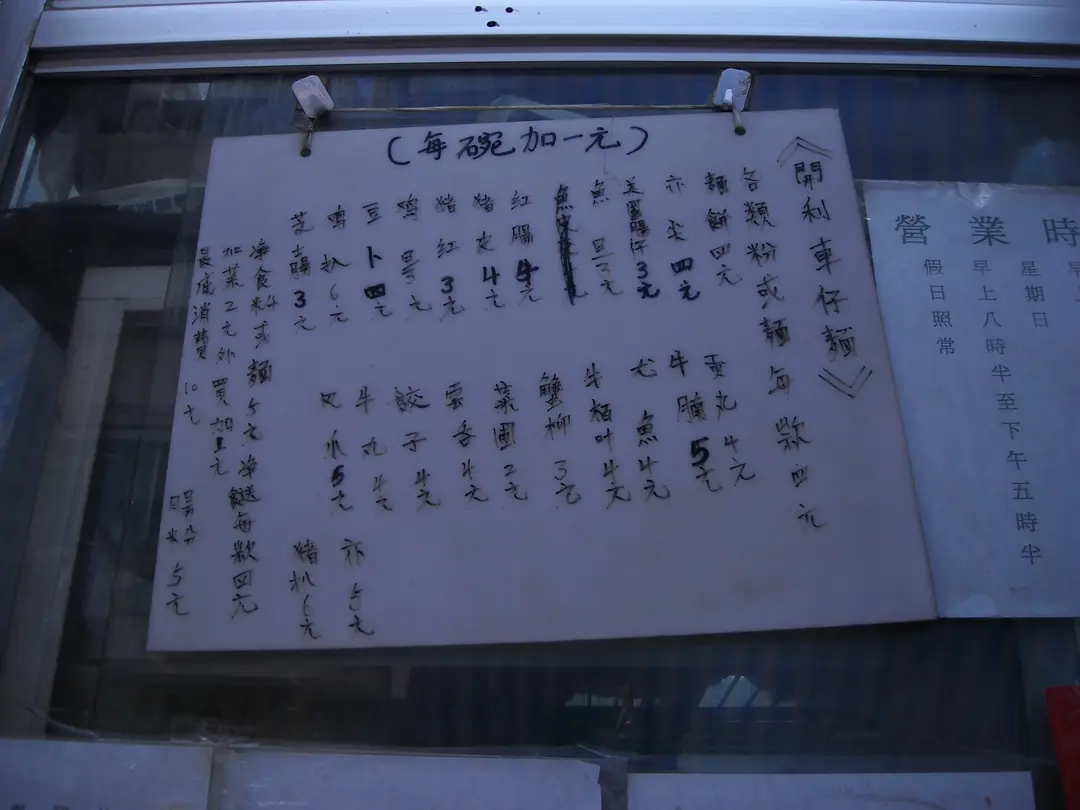 (每碗加一元)
《開利車仔麵》
各類粉或麵每款四元
麵餅四元
亦尖四元
魚旦3元
紅腸4元
豬皮4元
豬紅3元
鸡旦3元
豆卜四元
鸡扒6元
芝士腸3元
重丸4元
牛腩5元
尤魚4元
牛栢叶4元
蟹柳3元
菜囲2元
雲吞4元
餃子4元
牛丸4元
爪5元
5元
豬扒6元
淨食粉或麵5元淨餸每款四元
加菜2元外買加
最底消費10元
腸粉5元
營業時
星期日
早上八時半至下午五時半
假日照常